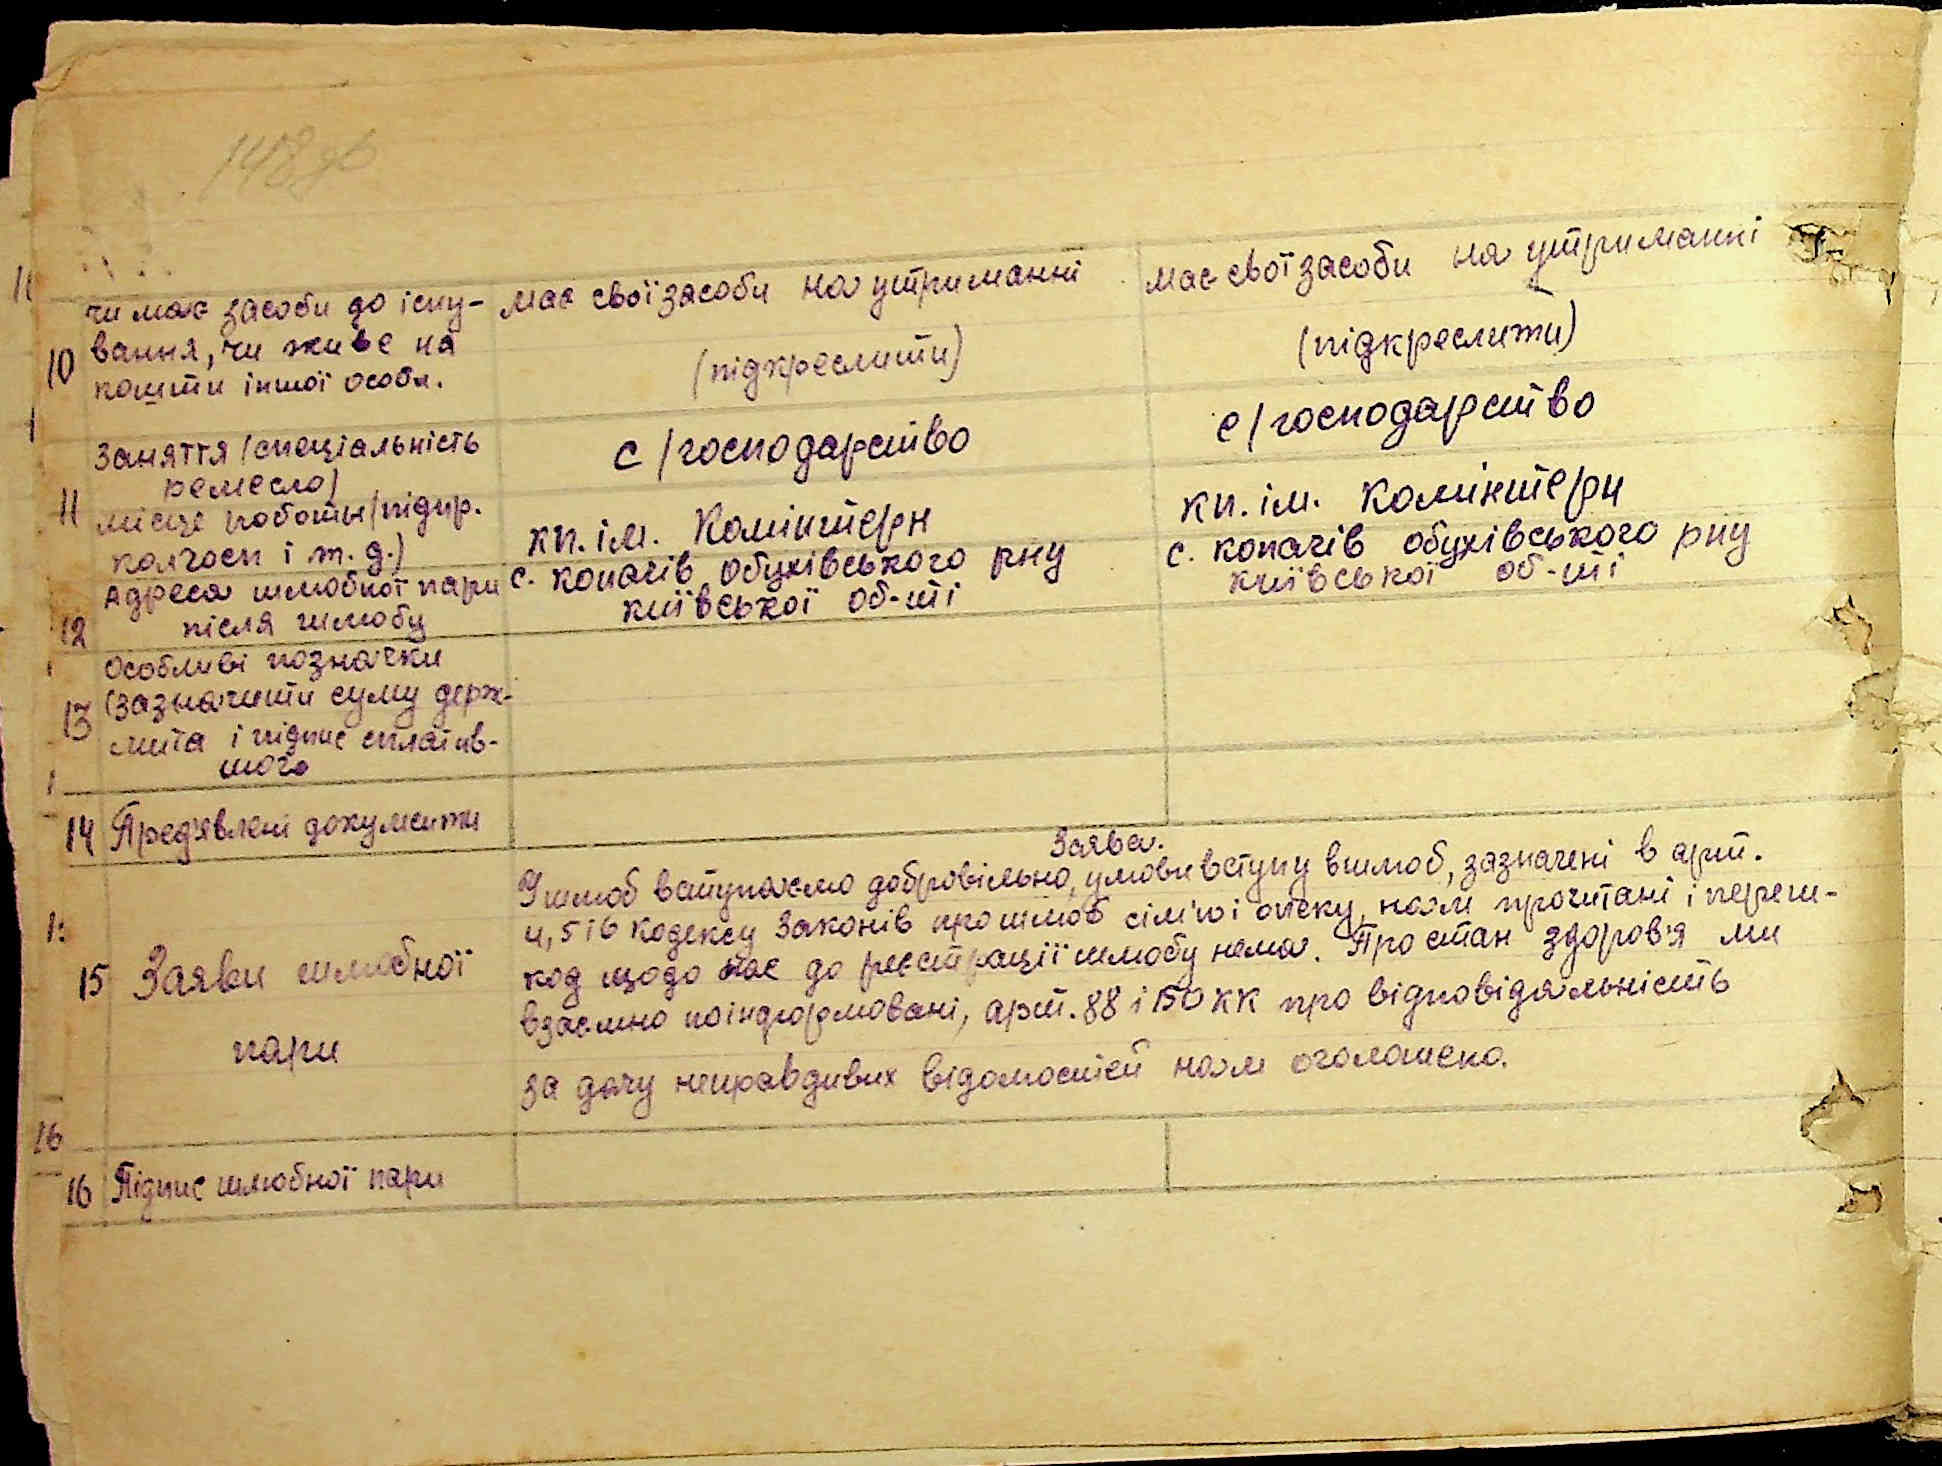 148 зв
чи має засоби до існу-
вання, чи живе на
кошти іншої особи.
10
має свої засоби на утриманні
(підкреслити)
має свої засоби на утриманні
(підкреслити)
Заняття (спеціальність
ремесло)
місце роботи (підпр.
колгосп і т. д.)
11
с/господарство
кп. ім. Комінтерн
с/господарство
кп. ім. Комінтерн
Адреса шлюбної пари
після шлюбу
12
с. копачів обухівського р-ну
київської об-ті
с. копачів обухівського р-ну
київської об-ті
Особливі позначки
(зазначити суму держ-
мита і підпис сплатив-
шого
13
14 Пред'явлені документи
Заява.
15 Заяви шлюбної
пари
У шлюб вступаємо добровільно, умови вступу в шлюб, зазначені в арт.
4, 5 і 6 кодексу Законів про шлюб сім'ю і опеку, нам прочитані і переш-
код щодо нас до реєстрації шлюбу нема. Про стан здоров'я ми
взаємно поінформовані, арт. 88 і 150 КК про відповідальність
за дачу неправдивих відомостей нам оголошено.
16
16 Підпис шлюбної пари